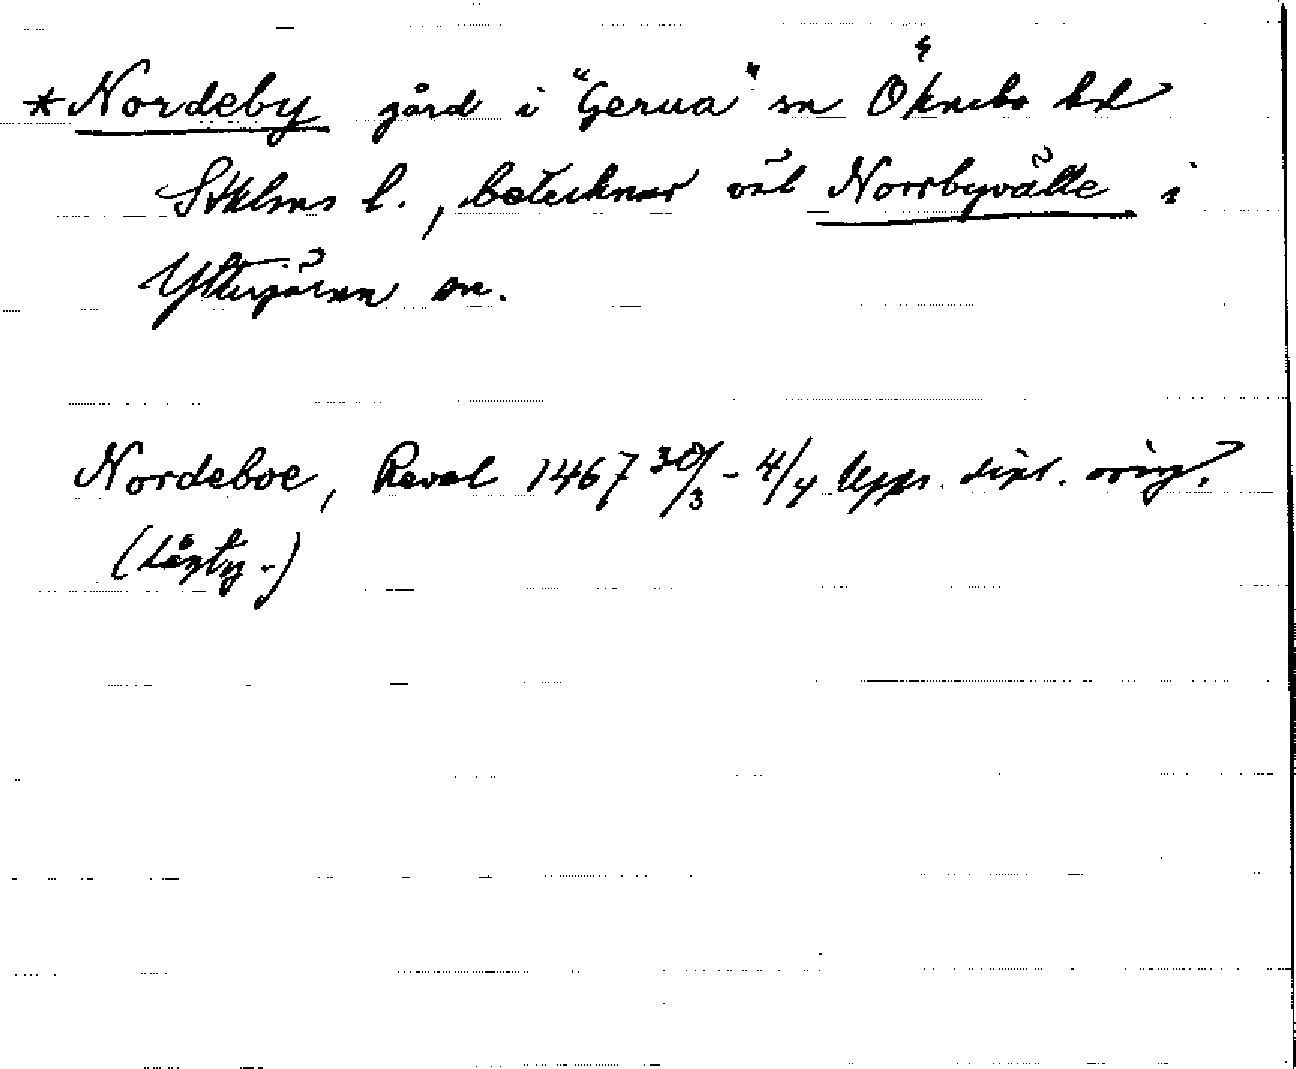 *Nordeby gård i "Gerua" sn Öknebo hd
Sthlms l., betecknar väl Norrbyvälle i
Ytterjärna sn.
Nordeboe, Reval 1467 30/3 - 4/4 Upps. dipl. orig.
(Lågty.)